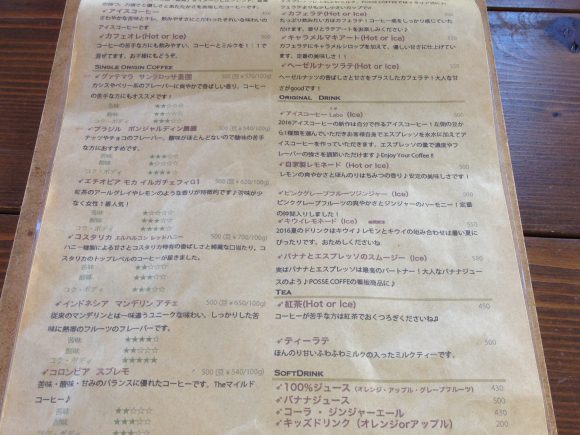 アイスコーヒー
さわやかな苦味とコク、飲みやすさにこだわったきれいな味わいの
アイスコーヒーです
カフェオレ(Hot or Ice)
コーヒーの苦手な方にも飲みやすい、コーヒーとミルクを1:1で
混ぜてます。お子様にもどうぞ。
SINGLE ORIGIN COFFEE
グァテマラ サンタロッサ農園 500 (豆¥570/100g)
カシスやベリー系のフレーバーに爽やかで香ばしい香り。コーヒー
の苦手な方にもオススメです!
苦味 ★★☆☆☆
酸味 ★★★☆☆
コク・ボディ ★★☆☆☆
ブラジル ボンジャルディン農園 500 (豆¥540/100g)
ナッツやチョコのフレーバー。酸味がほとんどないので酸味の苦手
な方におすすめです。
苦味 ★★★☆☆
酸味
コク・ボディ ★★★★☆
エチオピア モカ イルガチェフィG1 500 (豆¥620/100g)
紅茶のアールグレイやレモンのような香りが特徴的です♪苦味が少
なく女性1番人気!
苦味 ★☆☆☆☆
酸味
コク・ボディ
コスタリカ エルハルゴン レッドハニー 500 (豆¥700/100g)
ハニー精製による甘さとコスタリカ特有の香ばしさと綺麗な口当たり。コ
スタリカのトップレベルのコーヒーが届きました。
苦味
酸味
コク・ボディ
インドネシア マンデリン アチェ 500 (豆¥650/100g)
従来のマンデリンとは一味違うユニークな味わい、しっかりした苦
味に熱帯のフルーツのフレーバーです。
苦味 ★★★★☆
酸味 ★★☆☆☆
コク・ボディ ★★★★★
コロンビア スプレモ 500 (豆¥540/100g)
苦味・酸味・甘みのバランスに優れたコーヒーです。Theマイルド
コーヒー♪
苦味
酸味 ★★☆☆☆
コク・ボディ
カフェラテ(Hot or Ice)
たっぷり飲みたい方はカフェラテ!コーヒー感をしっかり感じていた
だけます。香りとラテアートをお楽しみください♪
キャラメルマキアート(Hot or Ice)
カフェラテにキャラメルシロップを加えて、優しい甘さに仕上げてい
ます。定番の1番人気!
ヘーゼルナッツラテ(Hot or Ice)
ヘーゼルナッツの香ばしさと甘さをプラスしたカフェラテ!大人な甘
さがgoodです!
ORIGINAL DRINK
アイスコーヒー Labo (Ice)
2016アイスコーヒーの新作は自分で作るアイスコーヒー!左側の豆か
ら1種類を選んでいただきお客様自身でエスプレッソを氷水に加えてア
イスコーヒーを作っていただきます。エスプレッソの量で濃度やフレ
ーバーの強さを調節いただけます♪Enjoy Your Coffee!!
自家製レモネード(Hot or Ice)
レモンの爽やかさとほんのりはちみつの香り♪安定の美味しさです!
ピンクグレープフルーツジンジャー (Ice)
ピンクグレープフルーツの爽やかさとジンジャーのハーモニー!定番
の仲間入りしました!
キウイレモネード(Ice) 550
2016夏のドリンクはキウイ♪レモンとキウイの組み合わせは暑い夏に
ぴったりです。お試しくださいね
バナナとエスプレッソのスムージー(Ice) 550
実はバナナとエスプレッソは最高のパートナー!大人なバナナジュー
スのよう♪POSSE COFFEEの看板商品に♪
TEA
紅茶(Hot or Ice) 450
コーヒーが苦手な方は紅茶でおくつろぎくださいね♫
ティーラテ 500
ほんのり甘いふわふわミルクの入ったミルクティーです。
SOFTDRINK
100%ジュース(オレンジ・アップル・グレープフルーツ) 430
バナナジュース 500
コーラ・ジンジャーエール 430
キッズドリンク(オレンジorアップル) 200